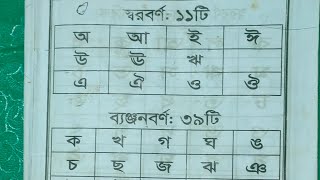 স্বরবর্ণ: ১১টি
অ আ ই ঈ
উ ঊ ঋ
এ ঐ ও ঔ
ব্যঞ্জনবর্ণ: ৩৯টি
ক খ গ ঘ ঙ
চ ছ জ ঝ ঞ